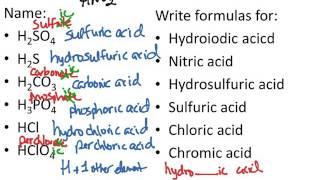 Name: ic
sulfate
• H2SO4 sulfuric acid
• H2S hydrosulfuric acid
carbonate ic
• H2CO3 carbonic acid
phosphate ic
• H3PO4 phosphoric acid
• HCl hydrochloric acid
perchlorate
• HClO4 ic perchloric acid
H + 1 other element
Write formulas for:
• Hydroiodic acicd
• Nitric acid
• Hydrosulfuric acid
• Sulfuric acid
• Chloric acid
• Chromic acid
hydro___ic acid